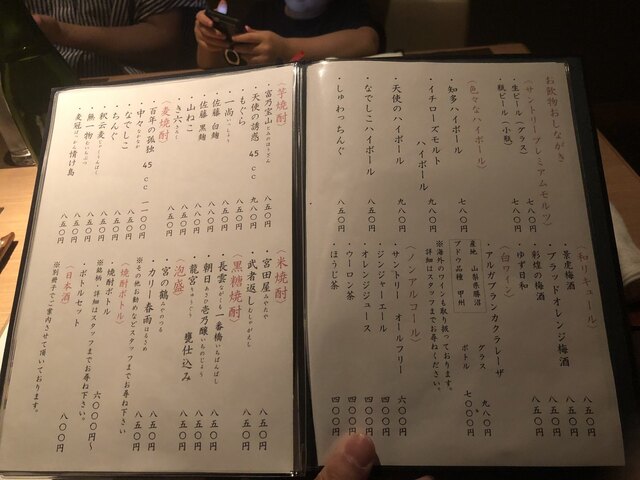 お飲物おしながき
（サントリープレミアムモルツ）
・生ビール（グラス） 七八〇円
・瓶ビール（小瓶） 七八〇円
（色々なハイボール）
・知多ハイボール 九八〇円
・イチローズモルト
ハイボール 九八〇円
・天使のハイボール 九八〇円
・なでしこハイボール 八五〇円
・しゅわっちんぐ 八五〇円
（和リキュール）
・景虎梅酒 八五〇円
・ブラッドオレンジ梅酒 八五〇円
・彩煌の梅酒 八五〇円
・ゆず日和 八五〇円
（白ワイン）
・アルガブランカクラレーザ
グラス 九八〇円
ボトル 七〇〇〇円
産地 山梨県勝沼
ブドウ品種 甲州
※海外のワインも取り扱っております。
詳細はスタッフまでお尋ねください。
（ノンアルコール）
・サントリー オールフリー 六〇〇円
・ジンジャーエール 四〇〇円
・オレンジジュース 四〇〇円
・ウーロン茶 四〇〇円
・ほうじ茶 四〇〇円
（芋焼酎）
・富乃宝山 とみのほうざん 八五〇円
・天使の誘惑 45cc 九八〇円
・もぐら 八五〇円
・一尚 いっしょう 八五〇円
・佐藤 白麹 八五〇円
・佐藤 黒麹 八五〇円
・山ねこ 八五〇円
・き六 きろく 八五〇円
（麦焼酎）
・百年の孤独 45cc 一一〇〇円
・中々 なかなか 八五〇円
・なでしこ 八五〇円
・ちんぐ 八五〇円
・釈云麦 じゃくうんばく 八五〇円
・無一物 むいちぶつ 八五〇円
・麦冠 ばっかん 情け島 八五〇円
（米焼酎）
・宮田屋 みやたや 八五〇円
・武者返し むしゃがえし 八五〇円
（黒糖焼酎）
・長雲 ながくも 一番橋 いちばんばし 八五〇円
・朝日 あさひ 壱乃醸 いちのじょう 八五〇円
・龍宮 りゅうぐう 甕仕込み 八五〇円
（泡盛）
・宮の鶴 みやのつる 八五〇円
・カリー春雨 はるさめ 八五〇円
※その他お勧めなどスタッフまでお尋ね下さい
（焼酎ボトル）
・焼酎ボトル 六〇〇〇円〜
※銘柄・詳細はスタッフまでお尋ね下さい。
・ボトルセット 八〇〇円
（日本酒）
※別冊子でご案内させて頂いております。